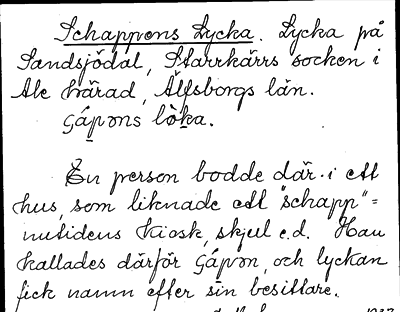 Schappens Lycka. Lycka på
Sandsjödal, Starrkärrs socken i
Ale härad, Älfsborgs län.
En person bodde där i ett
hus, som liknade ett "schapp"=
nutidens kiosk, skjul e.d. Han
kallades därför och lyckan
fick namn efter sin besittare.